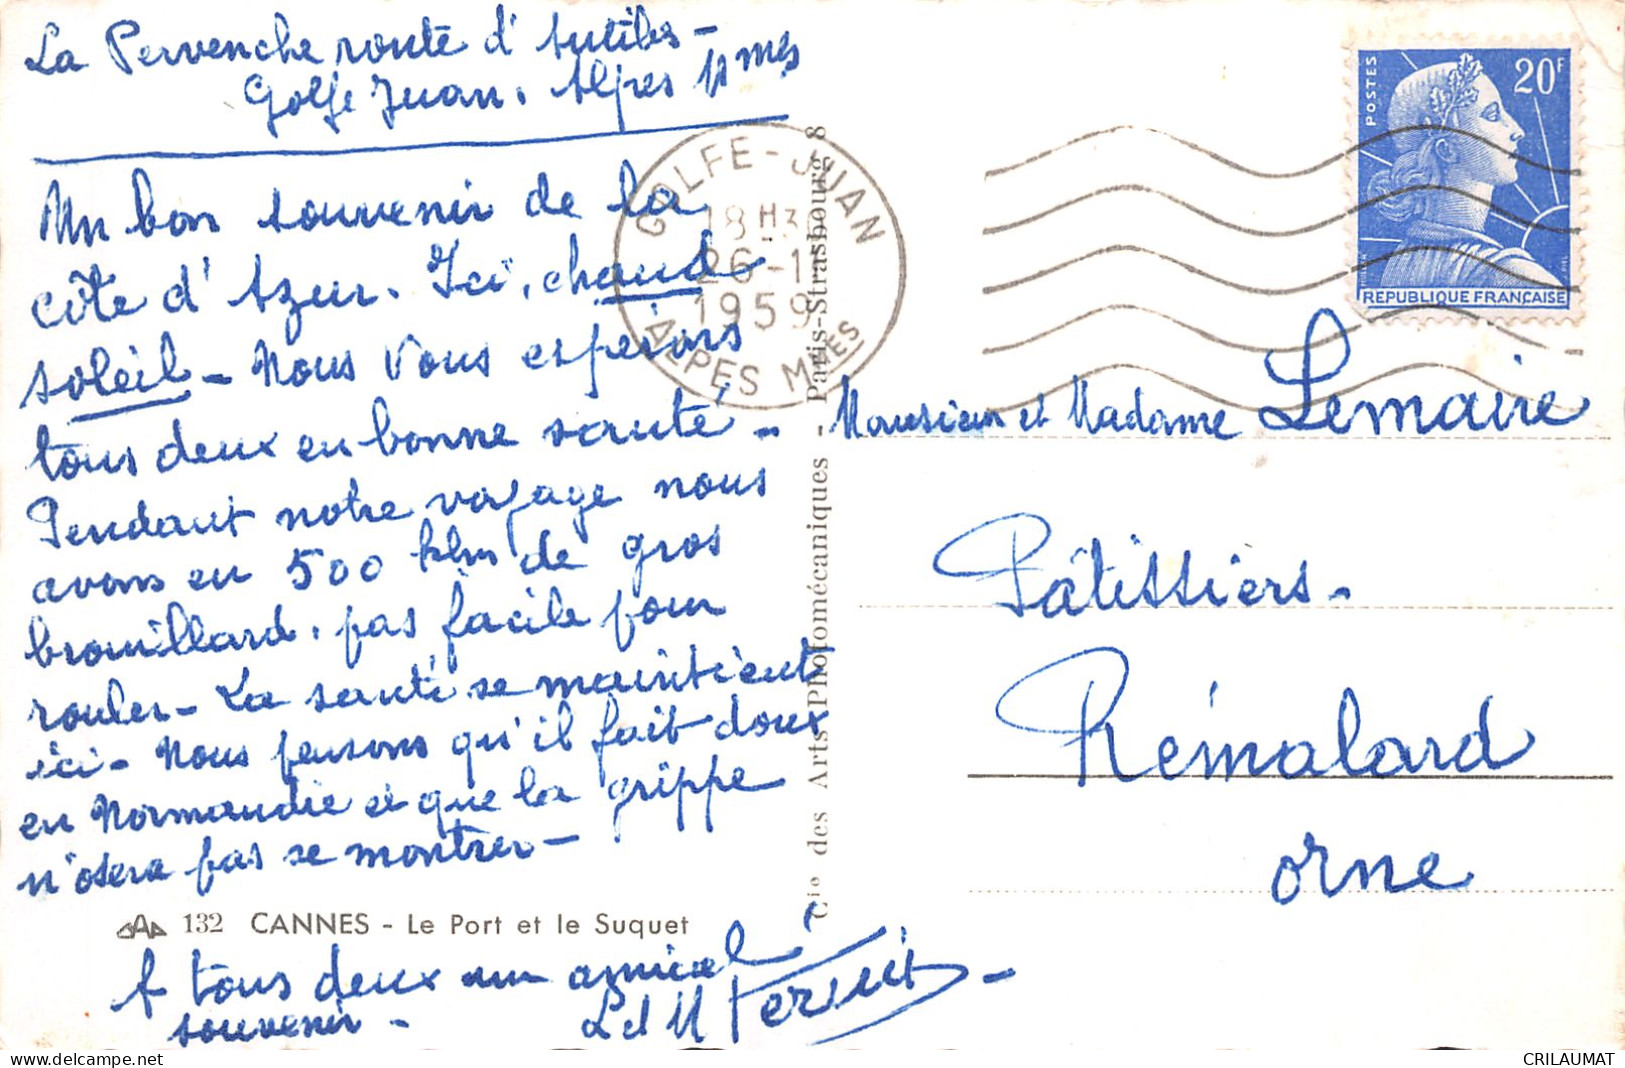 La Pervenche route d'Antibes -
Golfe Juan. Alpes Mmes
Un bon souvenir de la
côte d'Azur. Ici, chaud
soleil - Nous vous espérons
tous deux en bonne santé -
Pendant notre voyage nous
avons eu 500 klm de gros
brouillard, pas facile pour
rouler - La santé se maintient
ici - Nous pensons qu'il fait doux
en Normandie et que la grippe
n'osera pas se montrer -
132 CANNES - Le Port et le Suquet
A tous deux un amical
souvenir -
L et M
Cie des Arts Photomécaniques - Paris-Strasbourg 8
GOLFE-JUAN
18H3
26-1
1959
ALPES MMES
POSTES
20F
REPUBLIQUE FRANÇAISE
Monsieur et Madame Lemaire
Pâtissiers -
Rémalard
Orne
delcampe.net
CRILAUMAT